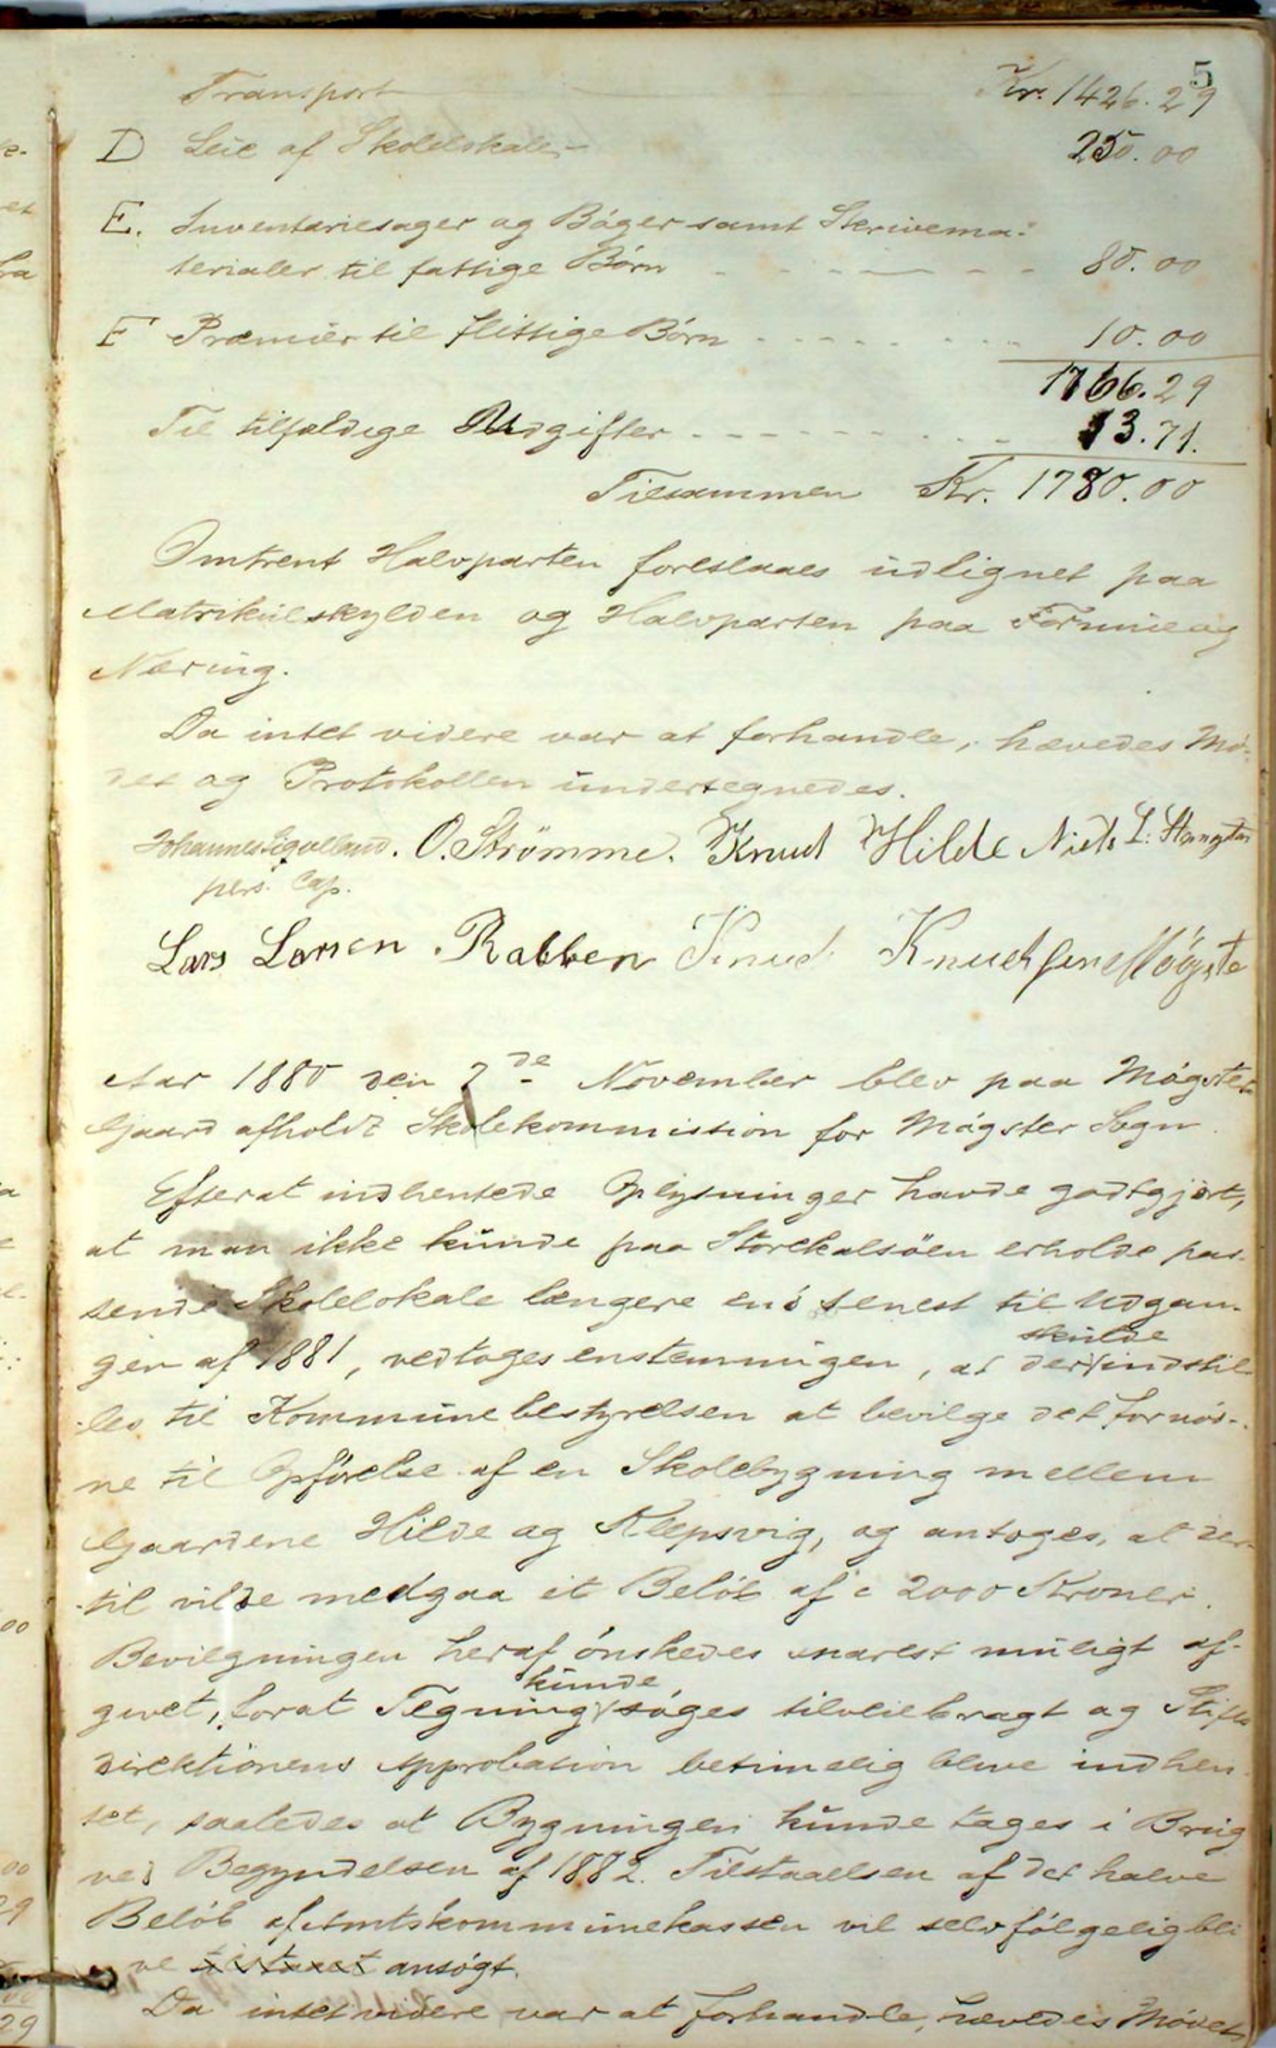 5
Transport Kr. 1426.29
D Leie af Skolelokaler 250.00
E. Inventariesager og Bøger samt Skrivema:
terialer til fattige Børn 80.00
F Præmier til flittige Børn 10.00
1766.29
Til tilfældige Udgifter 13.71.
Tilsammen Kr. 1780.00
Omtrent Halvparten foreslaaes udlignet paa
Matrikulskylden og Halvparten paa Formue og
Næring.
Da intet videre var at forhandle, hævedes Mø-
det og Protokollen undertegnedes.
Johannes Sigvelland. O. Strömme. Knud Hilde Niels L:
pers. Cap.
Lars Larsen Rabben Knud Knudsen Møgste
Aar 1880 den 2de November blev paa Møgster
Gaard afholdt Skolekommission for Møgster Sogn.
Efterat indhentede Oplysninger havde godtgjort,
at man ikke kunde paa Storekalsöen erholde pas-
sende Skolelokale længere end senest til Udgan-
gen af 1881, vedtoges enstemmigen, at der skulde indstil-
les til Kommunebestyrelsen at bevilge det fornød-
ne til Opførelse af en Skolebygning mellem
Gaardene Hilde og Klepsvig, og antoges, at der-
til vilde medgaa et Beløb af c 2000 Kroner.
Bevilgningen heraf ønskedes snarest muligt af-
givet, forat Tegning kunde søges tilveiebragt og Stifts
direktionens Approbation betimelig blive indhen-
tet, saaledes at Bygningen kunde tages i Brug
ved Begyndelsen af 1882. Tilstaaelsen af det halve
Beløb af Amtskommunekassen vil selvfølgelig bli
ve tilstaaet ansøgt.
Da intet videre var at forhandle, hævedes Mødet